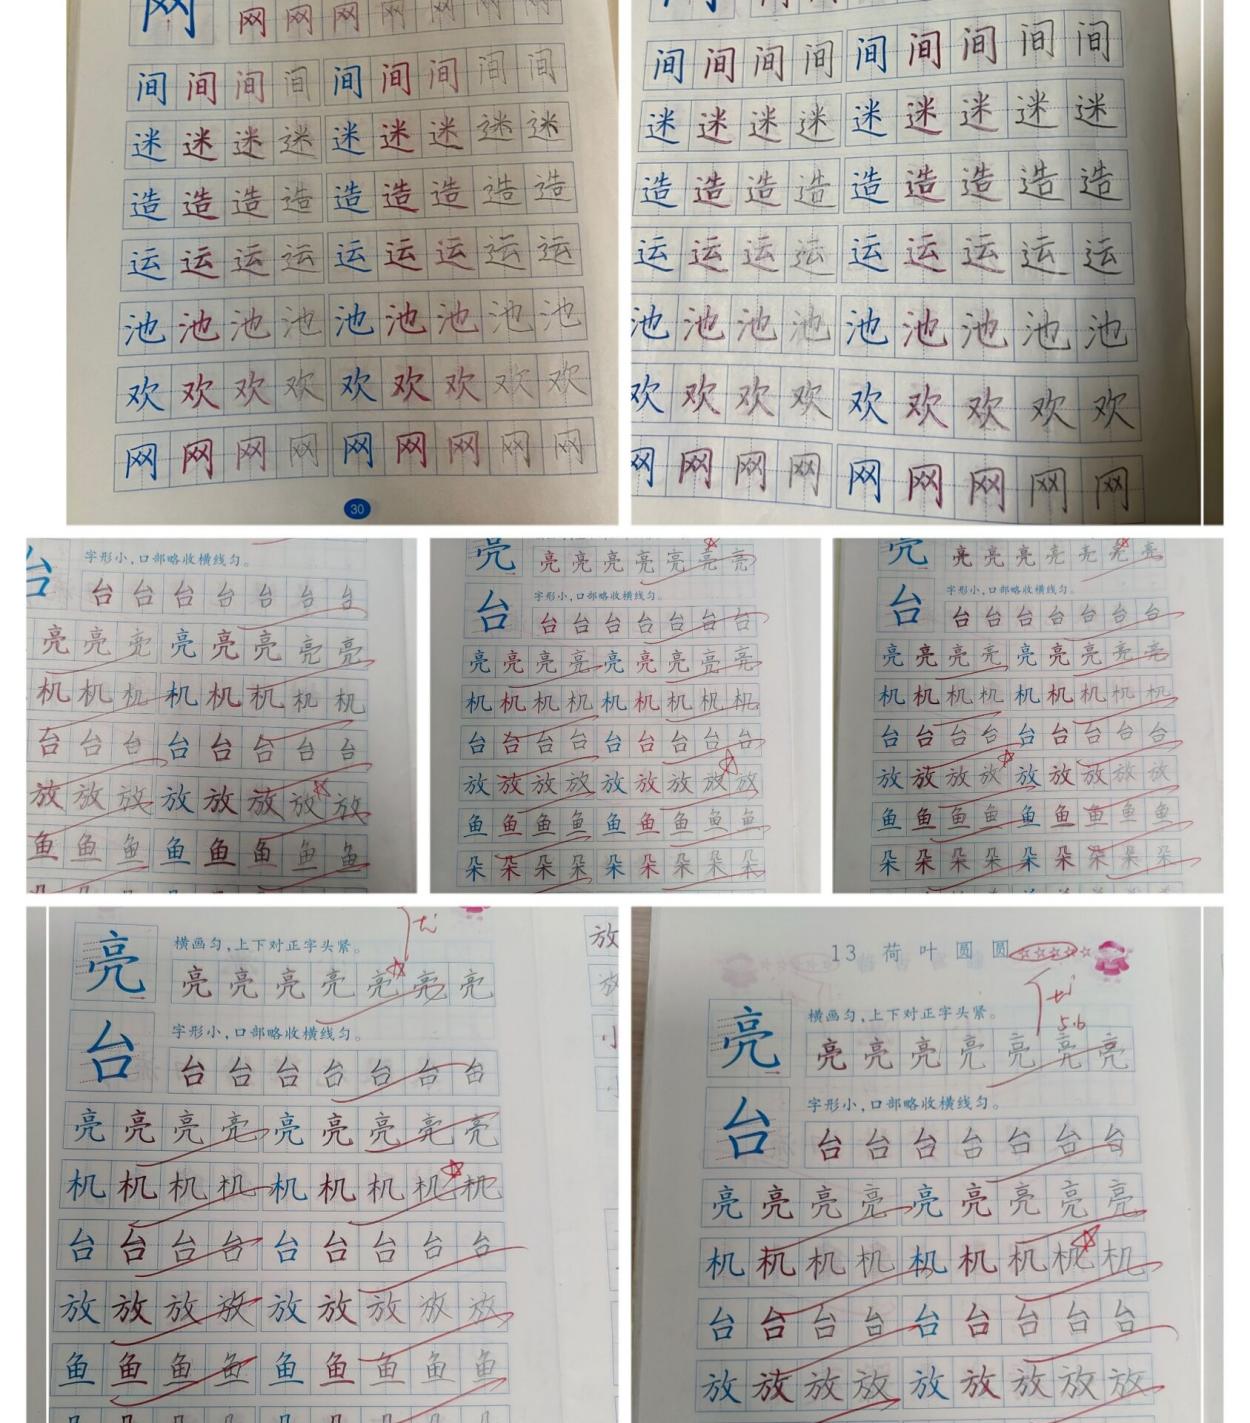 网 网 网 网 网 网 网 网
间 间 间 间 间 间 间 间 间
迷 迷 迷 迷 迷 迷 迷 迷 迷
造 造 造 造 造 造 造 造 造
运 运 运 运 运 运 运 运 运
池 池 池 池 池 池 池 池 池
欢 欢 欢 欢 欢 欢 欢 欢 欢
网 网 网 网 网 网 网 网 网
30
间 间 间 间 间 间 间 间 间
迷 迷 迷 迷 迷 迷 迷 迷 迷
造 造 造 造 造 造 造 造 造
运 运 运 运 运 运 运 运 运
池 池 池 池 池 池 池 池 池
欢 欢 欢 欢 欢 欢 欢 欢 欢
网 网 网 网 网 网 网 网 网
字形小,口部略收横线匀。
台 台 台 台 台 台 台 台
亮 亮 亮 亮 亮 亮 亮 亮
机 机 机 机 机 机 机 机
台 台 台 台 台 台 台 台
放 放 放 放 放 放 放 放
鱼 鱼 鱼 鱼 鱼 鱼 鱼 鱼
亮 亮 亮 亮 亮 亮 亮
字形小,口部略收横线匀。
台 台 台 台 台 台 台
亮 亮 亮 亮 亮 亮 亮 亮 亮
机 机 机 机 机 机 机 机 机
台 台 台 台 台 台 台 台 台
放 放 放 放 放 放 放 放 放
鱼 鱼 鱼 鱼 鱼 鱼 鱼 鱼 鱼
朵 朵 朵 朵 朵 朵 朵 朵 朵
亮 亮 亮 亮 亮 亮 亮 亮
字形小,口部略收横线匀。
台 台 台 台 台 台 台
亮 亮 亮 亮 亮 亮 亮 亮 亮
机 机 机 机 机 机 机 机 机
台 台 台 台 台 台 台 台 台
放 放 放 放 放 放 放 放 放
鱼 鱼 鱼 鱼 鱼 鱼 鱼 鱼 鱼
朵 朵 朵 朵 朵 朵 朵 朵 朵
横画匀,上下对正字头紧。
亮 亮 亮 亮 亮 亮 亮 亮
字形小,口部略收横线匀。
台 台 台 台 台 台 台 台
亮 亮 亮 亮 亮 亮 亮 亮 亮
机 机 机 机 机 机 机 机 机
台 台 台 台 台 台 台 台 台
放 放 放 放 放 放 放 放 放
鱼 鱼 鱼 鱼 鱼 鱼 鱼 鱼 鱼
放
13 荷叶圆圆
5.6
横画匀,上下对正字头紧。
亮 亮 亮 亮 亮 亮 亮 亮
字形小,口部略收横线匀。
台 台 台 台 台 台 台 台
亮 亮 亮 亮 亮 亮 亮 亮 亮
机 机 机 机 机 机 机 机 机
台 台 台 台 台 台 台 台 台
放 放 放 放 放 放 放 放 放